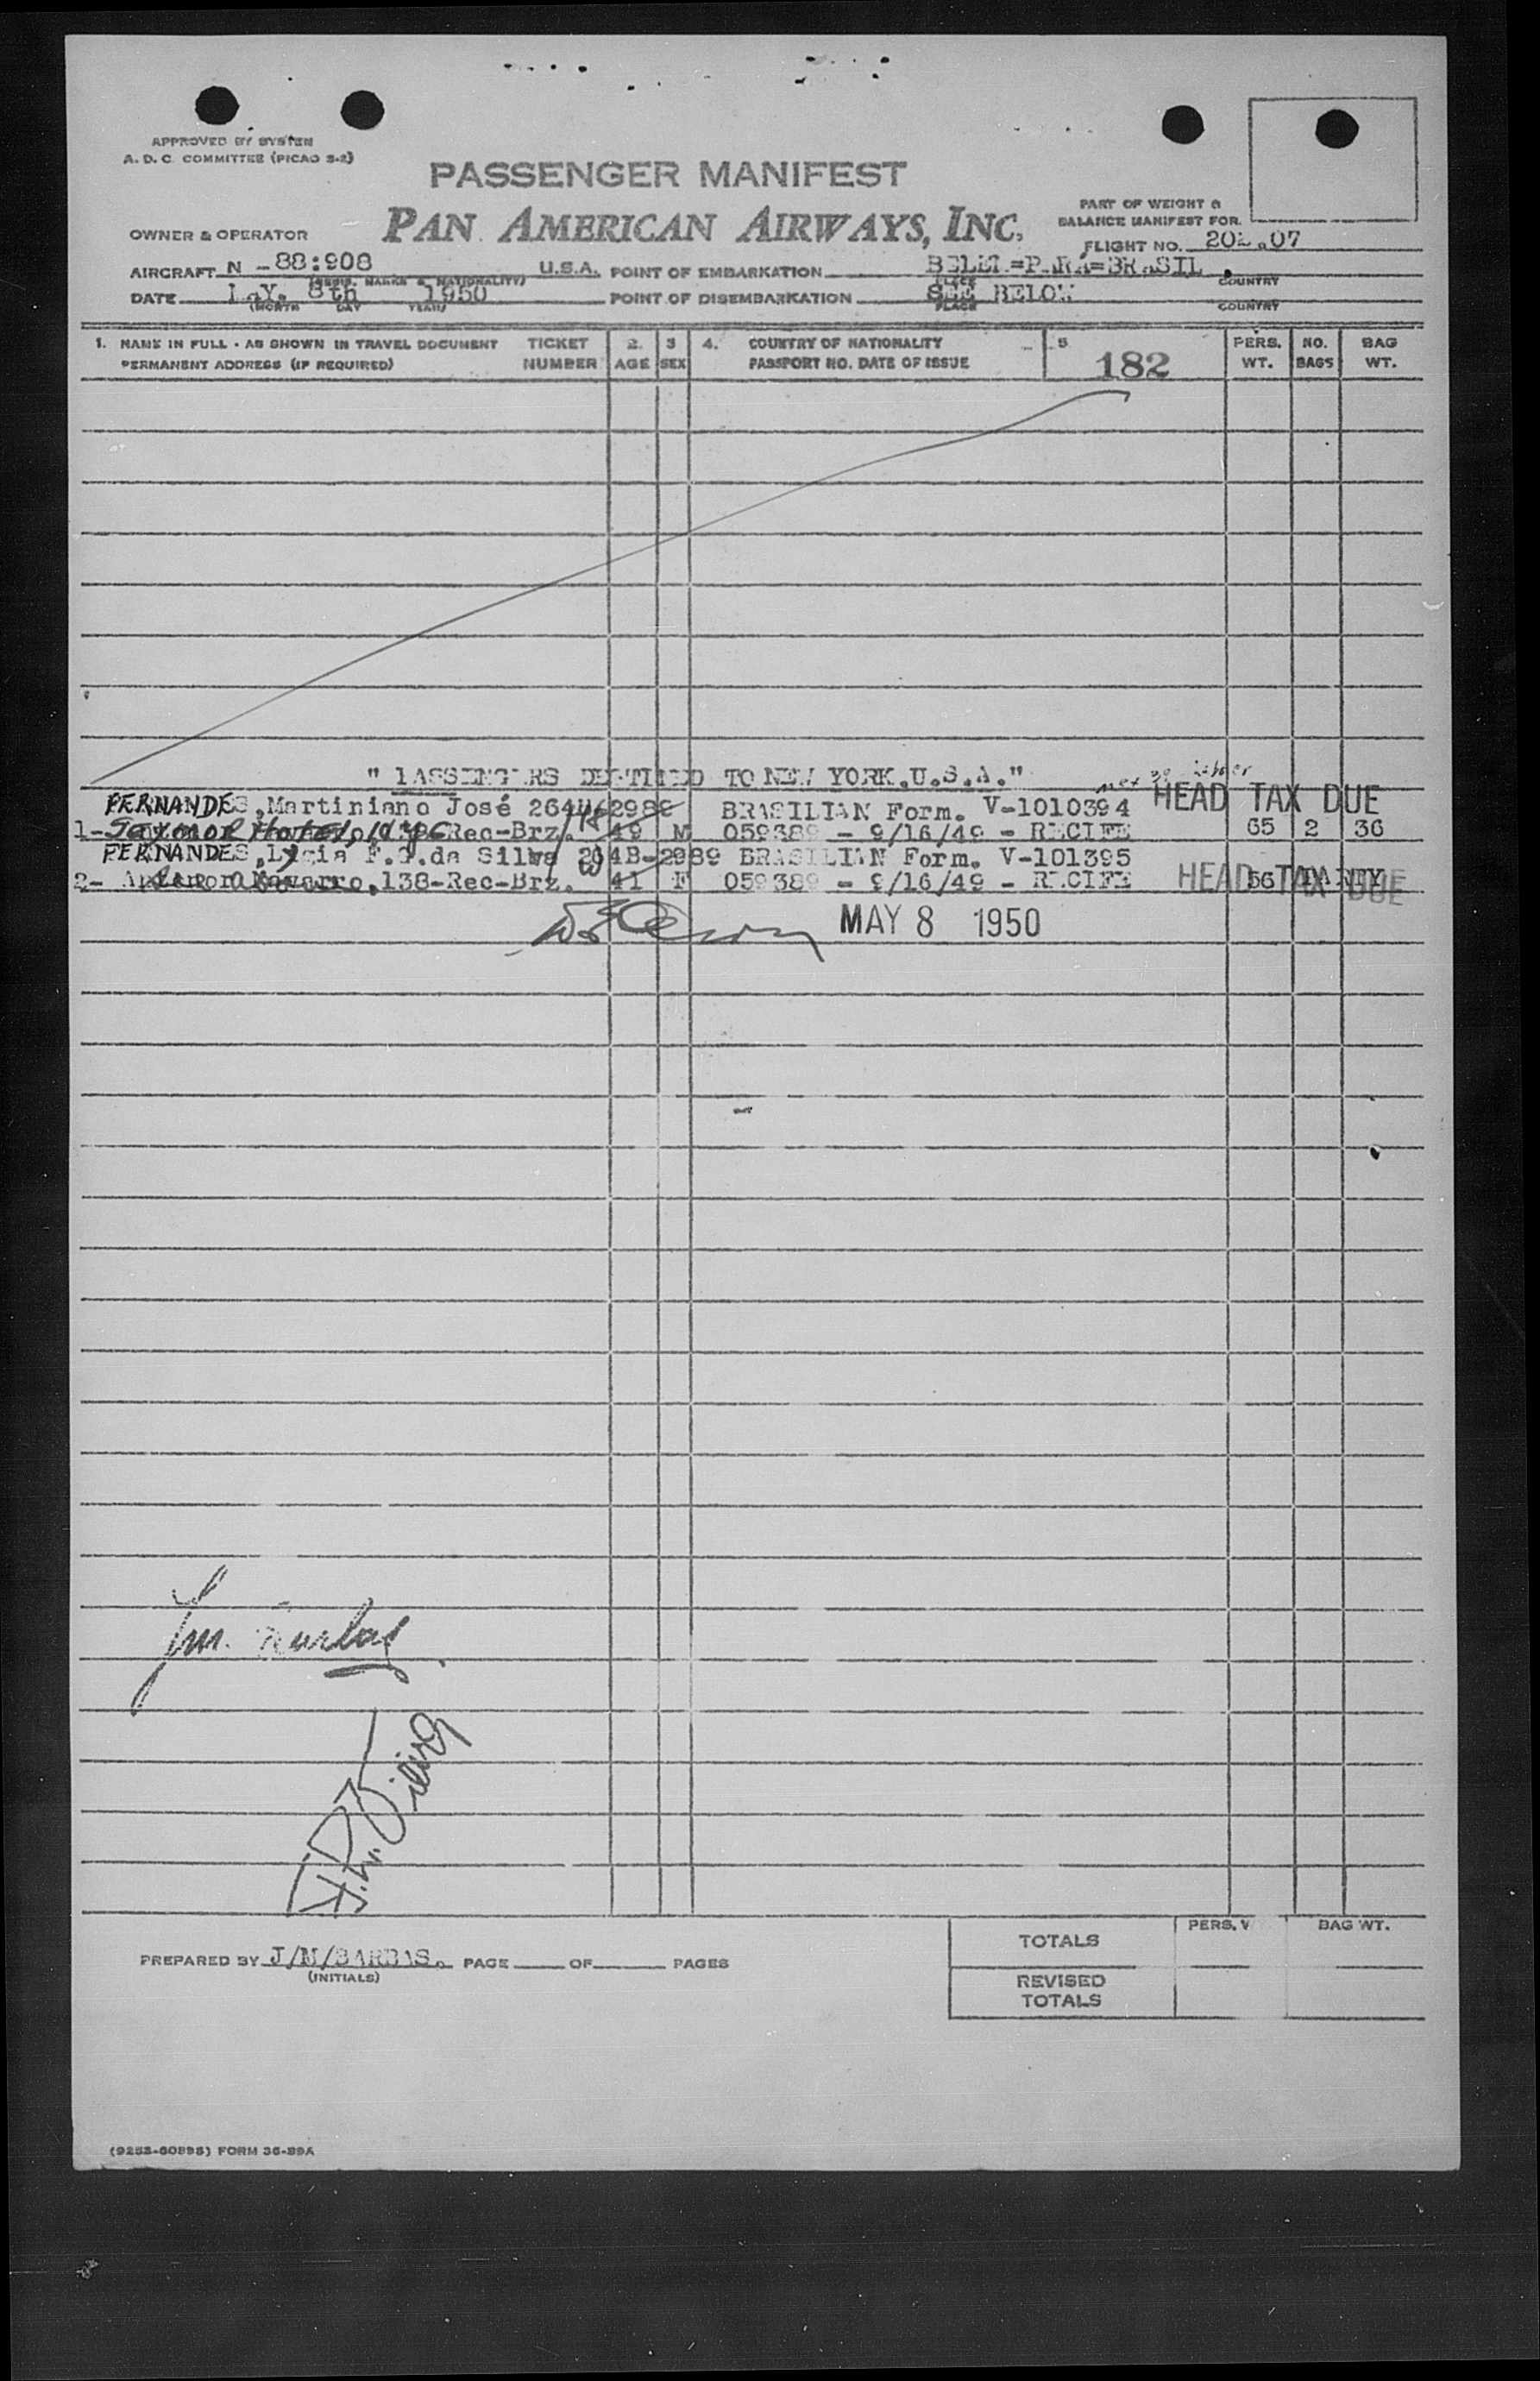 APPROVED BY SYSTEM
A. D. C. COMMITTEE (PICAO S-2)
PASSENGER MANIFEST
PAN AMERICAN AIRWAYS, INC.
PART OF WEIGHT &
BALANCE MANIFEST FOR
OWNER & OPERATOR
FLIGHT NO.
AIRCRAFT N -88:908 U.S.A. POINT OF EMBARKATION BELEM=PARÁ=BRASIL
(REGIS. MARKS & NATIONALITY) PLACE COUNTRY
DATE MAY. 8th 1950 POINT OF DISEMBARKATION SEE BELOW
(MONTH DAY YEAR) PLACE COUNTRY
1. NAME IN FULL - AS SHOWN IN TRAVEL DOCUMENT TICKET 2. 3 4. COUNTRY OF NATIONALITY 5 PERS. NO. BAG
PERMANENT ADDRESS (IF REQUIRED) NUMBER AGE SEX PASSPORT NO. DATE OF ISSUE 182 WT. BAGS WT.
" PASSENGERS DESTINED TO NEW YORK.U.S.A."
FERNANDES,Martiniano José BRASILIAN Form. V-1010394 HEAD TAX DUE
1- Hotel, NYC Rec-Brz. 49 M 059389 - 9/16/49 - RECIFE 65 2 36
FERNANDES,Lygia da Silva 264B-2989 BRASILIAN Form. V-101395
2- Navarro,138-Rec-Brz. 41 F 059389 - 9/16/49 - RECIFE HEAD TAX DUE 56 PARTY
MAY 8 1950
PREPARED BY J/M/BARBAS. PAGE OF PAGES
(INITIALS)
TOTALS PERS. W BAG WT.
REVISED
TOTALS
FORM 36-89A